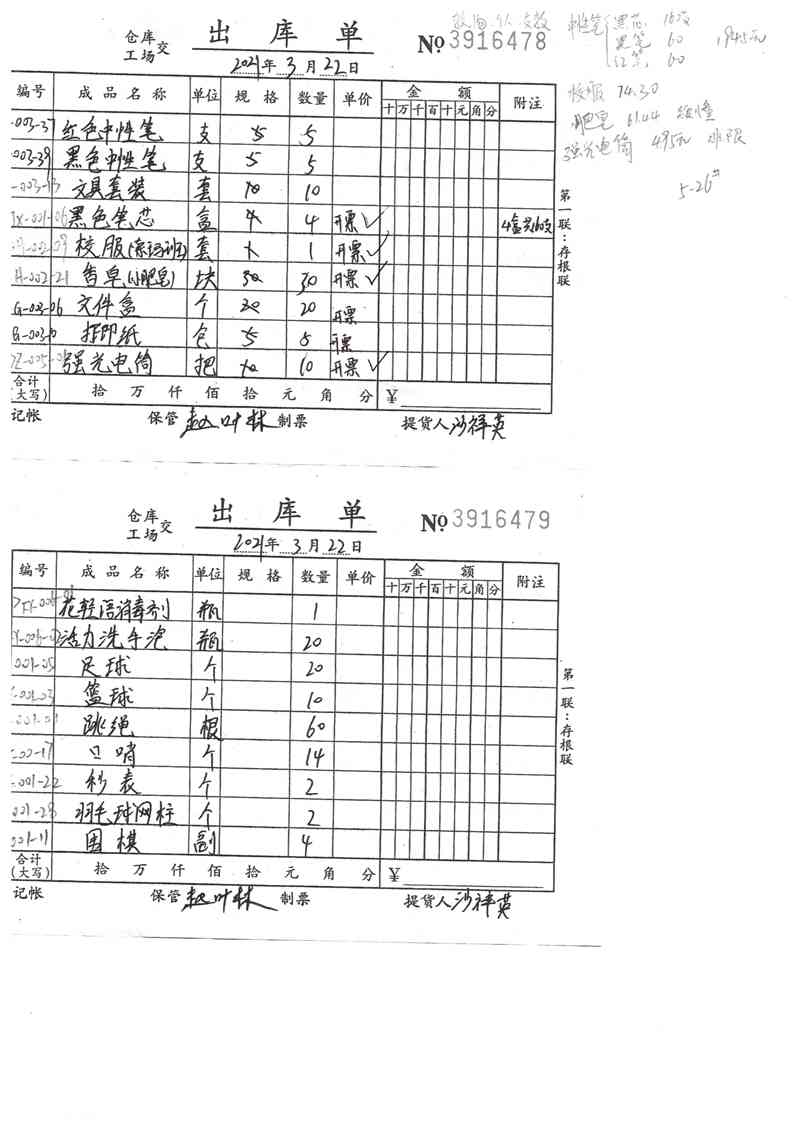 中性笔 黑芯 160支
黑笔 60 1945元
红笔 60
校服 74.30
肥皂 61.44
强光电筒 495元
5-26
仓库
工场 交
出库单
No 3916478
2021年3月22日
编号 成品名称 单位 规格 数量 单价 金额 附注
十万千百十元角分
003-37 红色中性笔 支 5 5
003-39 黑色中性笔 支 5 5
003-13 文具套装 套 10 10
001-06 黑色笔芯 盒 4 4 开票✓ 4盒共160支
002-09 校服 套 1 开票✓
H-002-21 香皂(小肥皂) 块 30 30 开票✓
G-003-06 文件盒 个 20 20 开票
003-10 打印纸 包 5 8 开票
005-01 强光电筒 把 10 10 开票✓
合计
(大写) 拾万仟佰拾元角分 ¥
记帐 保管 赵叶林 制票 提货人 沙祥英
第一联:存根联
仓库
工场 交
出库单
No 3916479
2021年3月22日
编号 成品名称 单位 规格 数量 单价 金额 附注
十万千百十元角分
花轻语消毒剂 瓶 1
活力洗手液 瓶 20
001-05 足球 个 20
001-03 篮球 个 10
001-01 跳绳 根 60
口哨 个 14
001-22 秒表 个 2
001-28 羽毛球网柱 个 2
001-11 围棋 副 4
合计
(大写) 拾万仟佰拾元角分 ¥
记帐 保管 赵叶林 制票 提货人 沙祥英
第一联:存根联